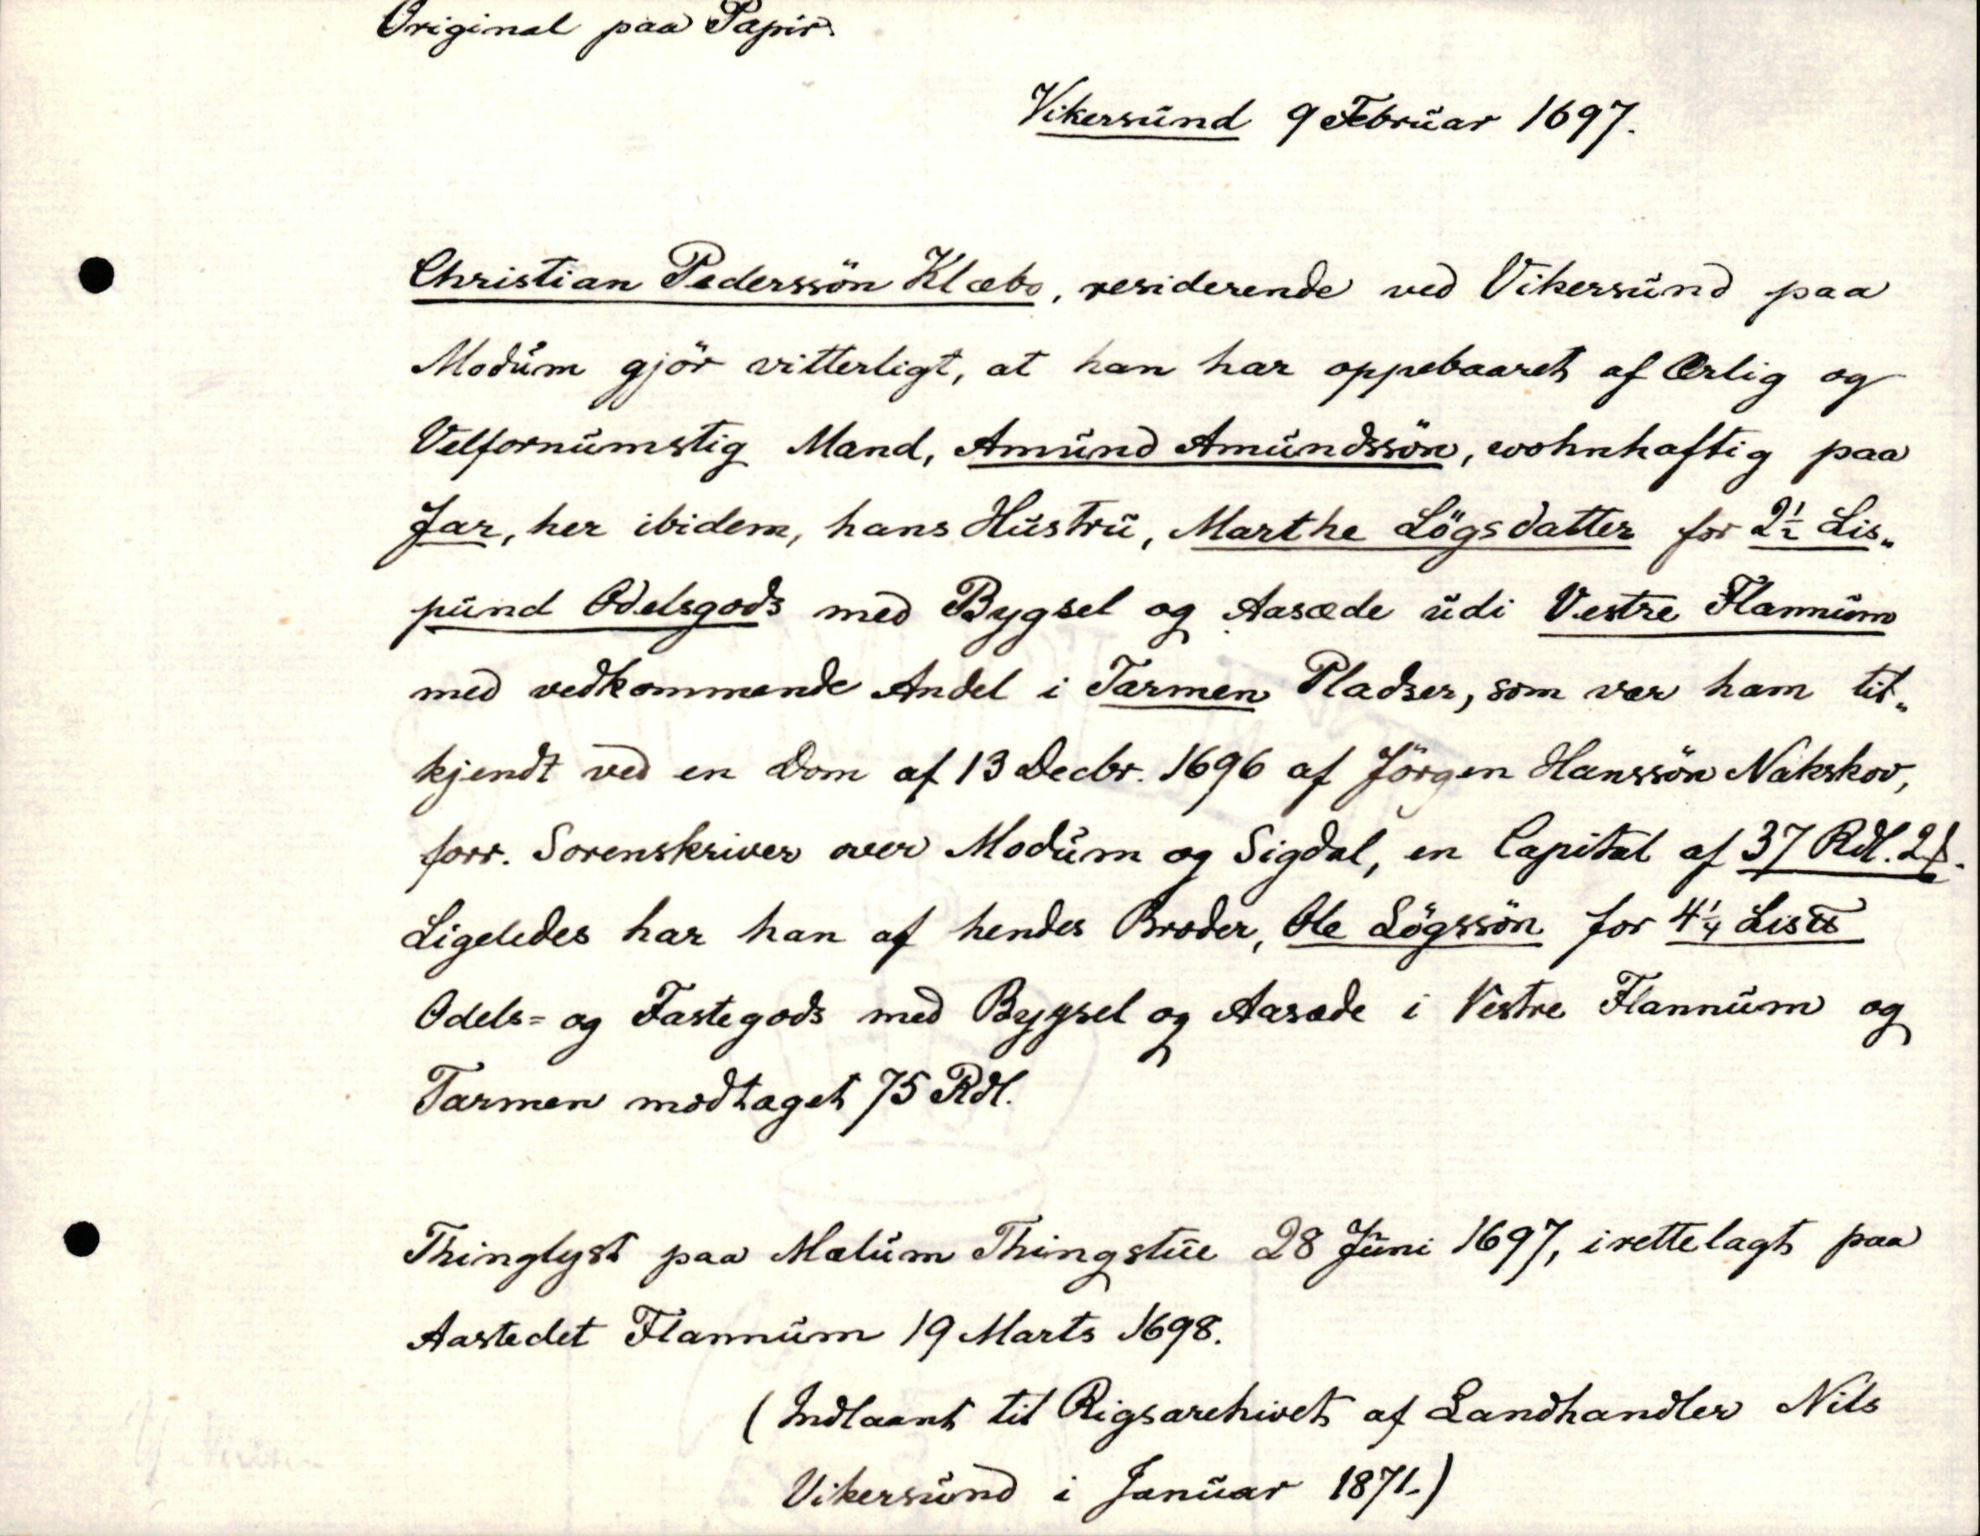 Original paa Papir.
Vikersund 9 Februar 1697.
Christian Pederssön Klæbo, residerende ved Vikersund paa
Modum gjör vitterligt, at han har oppebaaret af Ærlig og
Velfornumstig Mand, Amund Amundssön, wohnhaftig paa
Jar, her ibidem, hans Hustru, Marthe Lögsdatter for 2½ Lis„
pund Odelsgods med Bygsel og Aasæde udi Vestre Flannum
med vedkommende Andel i Tarmen Pladser, som var ham til„
kjendt ved en Dom af 13 Decbr. 1696 af Jörgen Hanssön Nakskov,
forr. Sorenskriver over Modum og Sigdal, en Capital af 37 Rdl. 2
Ligeledes har han af hendes Broder, Ole Lögssön for 4¼ Lis℔
Odels= og Fastegods med Bygsel og Aasæde i Vestre Flannum og
Tarmen modtaget 75 Rdl.
Thinglyst paa Mælum Thingstue 28 Juni 1697, irettelagt paa
Aastedet Flannum 19 Marts 1698.
(Indlaant til Rigsarchivet af Landhandler Nils
Vikersund i Januar 1871.)